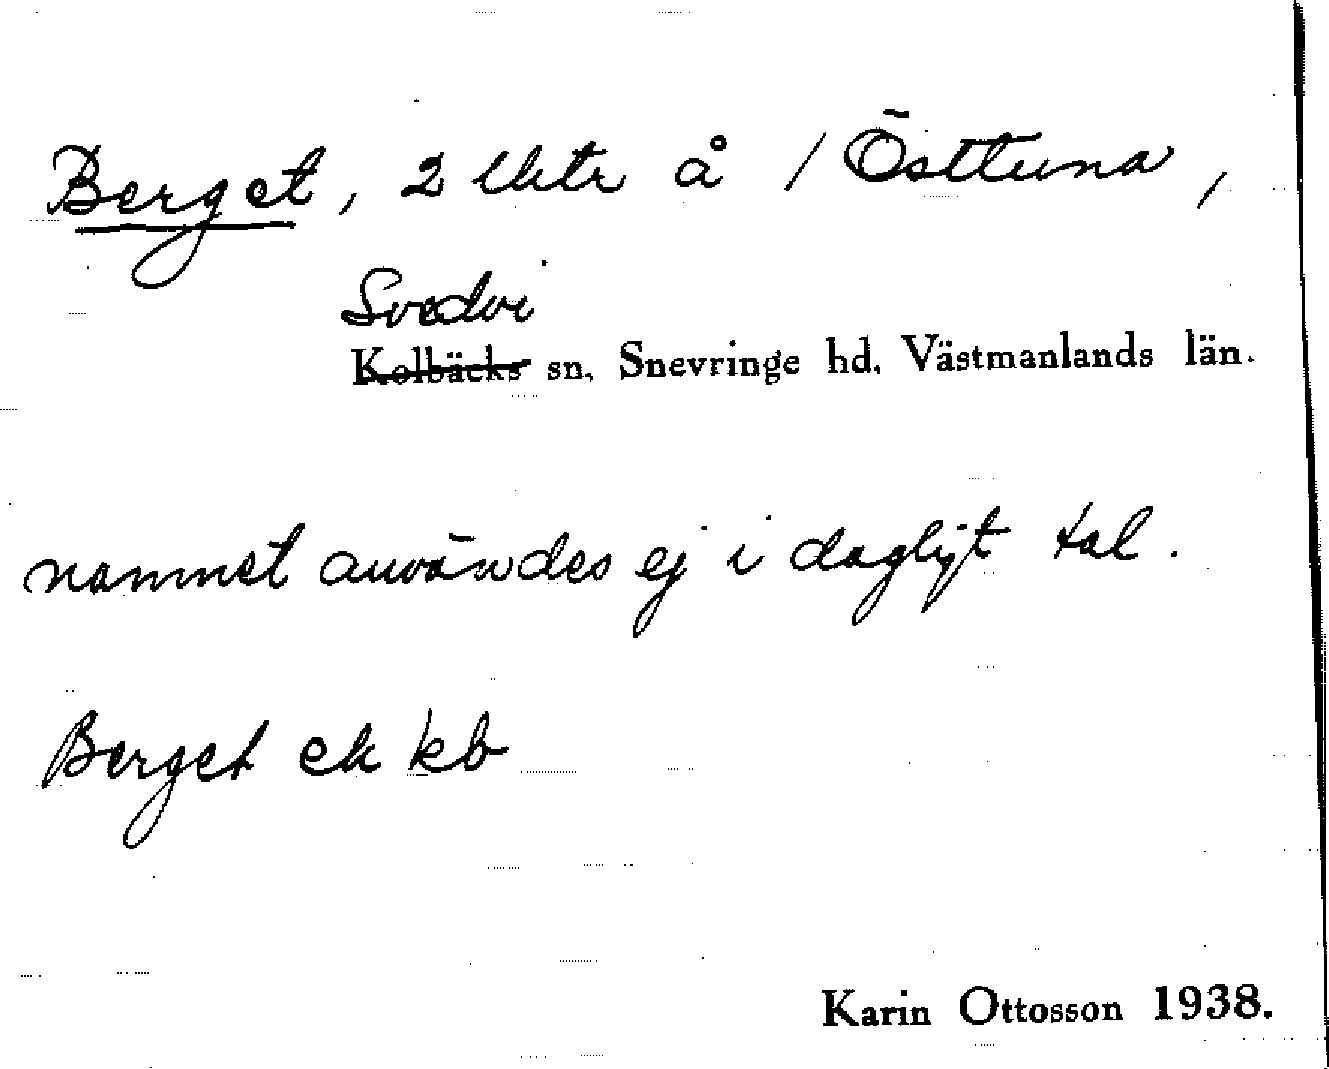 Berget, 2 lhtr å / Östtuna,
Svedvi
Kolbäcks sn. Snevringe hd. Västmanlands län.
namnet användes ej i dagligt tal.
Berget ek kb
Karin Ottosson 1938.